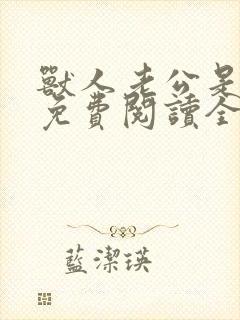 獸人老公是
免費閱讀全
藍潔瑛